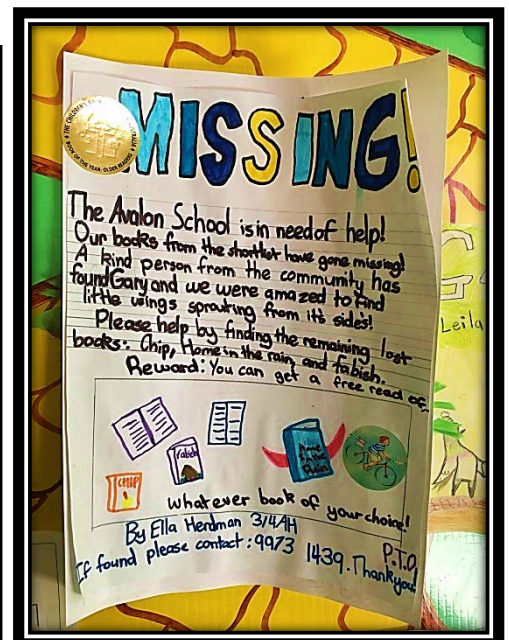 THE CHILDREN'S BOOK
BOOK OF THE YEAR: OLDER READERS
MISSING!
The Avalon School is in need of help!
Our books from the shortlist have gone missing!
A kind person from the community has
found Gary and we were amazed to find
little wings sprouting from it's sides!
Please help by finding the remaining lost
books: Chip, Home in the rain, and fabish.
Reward: You can get a free read of
fabish
Home
in the
Rain
CHIP
whatever book of your choice!
By Ella Herdman 3/4AH
If found please contact: 9973 1439. Thankyou!
P.T.O.
Leila